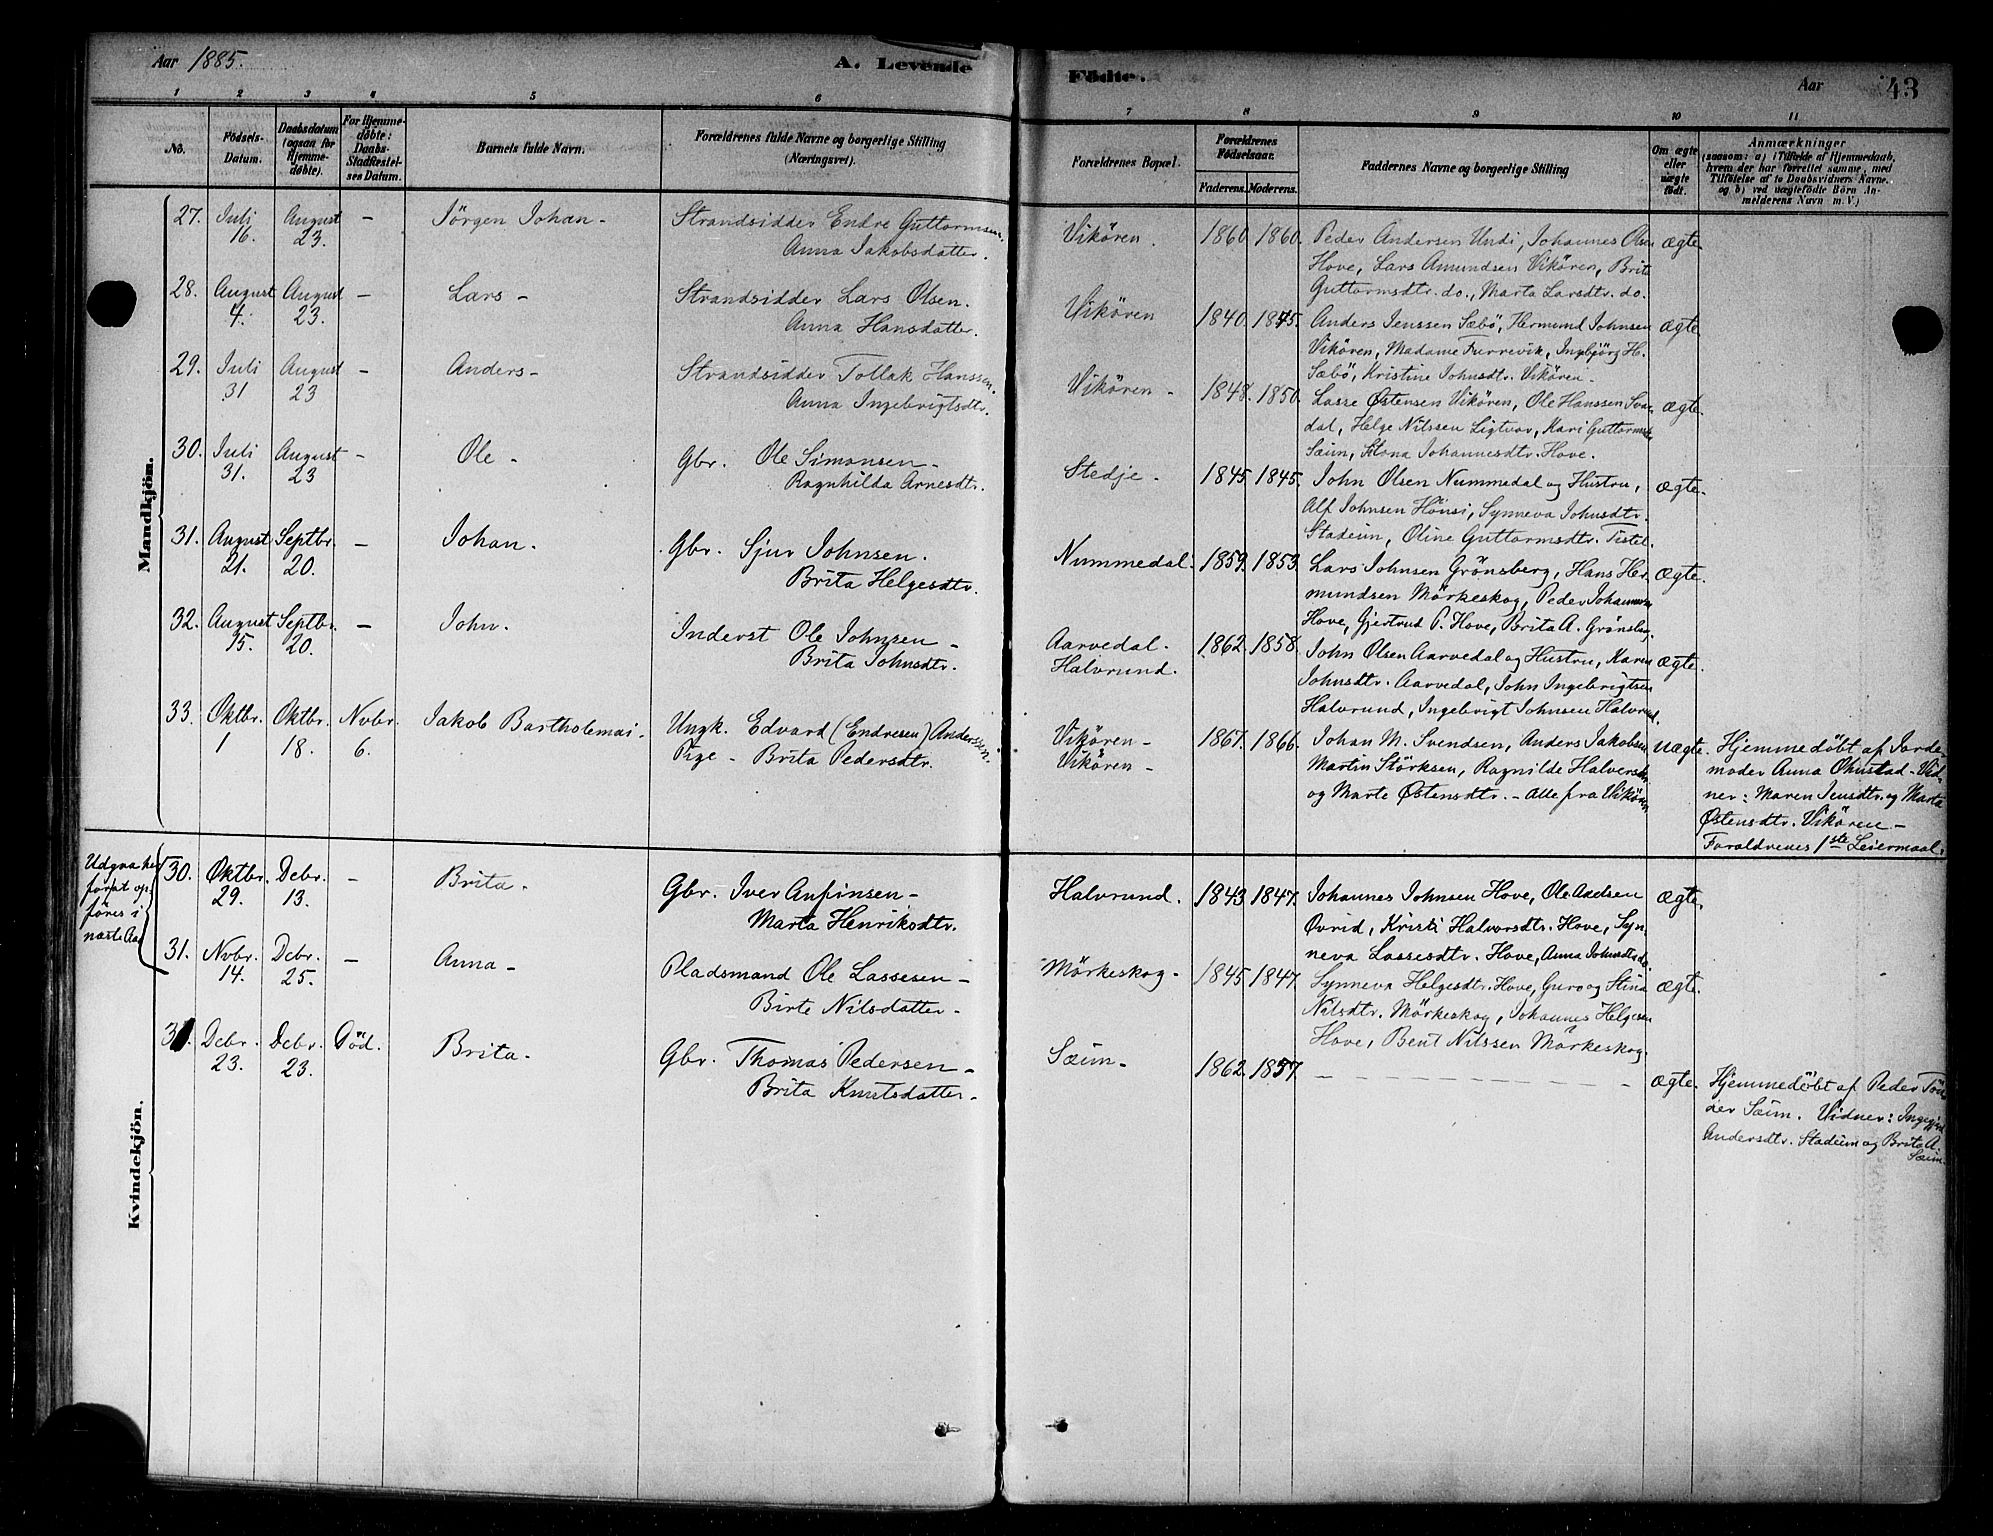 Aar 1885.
A. Levende
Födte.
Aar
43
1 2 3 4 5 6 7 8 9 10 11
No.
Födsels-Datum.
Daabsdatum (ogsaa for Hjemme-døbte).
For Hjemme-døbte: Daabs-Stadfæstel-ses Datum.
Barnets fulde Navn.
Forældrenes fulde Navne og borgerlige Stilling (Næringsvei).
Forældrenes Bopæl.
Forældrenes Födselsaar.
Faderens. Moderens.
Faddernes Navne og borgerlige Stilling
Om ægte eller uægte födt.
Anmærkninger
(saasom: a) i Tilfælde af Hjemmedaab,
hvem der har forrettet samme, med
Tilföielse af to Daabsvidners Navne,
og b) ved uægtefödte Börn An-
melderens Navn m. V.)
Mandkjön.
27. Juli 16. August 23. - Jörgen Johan -
Strandsidder Endre Guttormsen.
Anna Jakobsdatter.
Vikören. 1860. 1860.
Peder Andersen Undi, Johannes Olsen
Hove, Lars Amundsen Vikören, Brit
Guttormsdtr. do., Marta Larsdtr. do.
ægte.
28. August 4. August 23. - Lars -
Strandsidder Lars Olsen.
Anna Hansdatter.
Vikören 1840. 1845.
Anders Jenssen Sæbö, Hermund Johnsen
Vikören, Madame Furrevik, Ingebjörg H.
Sæbö, Kristine Johnsdtr. Vikören.
ægte.
29. Juli 31 August 23 - Anders -
Strandsidder Tollak Hanssen.
Anna Ingebrigtsdtr.
Vikören - 1848. 1850.
Lasse Østensen Vikören, Ole Hanssen Svæ-
dal, Helge Nilssen Ligtvor, Kari Guttormsdtr
Sæim, Stona Johannesdtr. Hove.
ægte.
30. Juli 31. August 23 - Ole -
Gbr. Ole Simonsen -
Ragnhilda Arnesdtr.
Stedje - 1845. 1845.
John Olsen Nummedal og Hustru,
Alf Johnsen Hönsi, Synneva Johnsdtr.
Stadeim, Oline Guttormsdtr. Tistel.
ægte.
31. August 21. Septbr. 20. - Johan.
Gbr. Sjur Johnsen.
Brita Helgesdtr.
Nummedal. 1859. 1853.
Lars Johnsen Grönsberg, Hans Her-
mundsen Mörkeskog, Peder Johannesen
Hove, Gjertrud P. Hove, Brita A. Grönsber.
ægte.
32. August 15. Septbr. 20. - John.
Inderst Ole Johnsen -
Brita Johnsdtr.
Aarvedal.
Halvrund.
1862. 1858.
John Olsen Aarvedal og Hustru, Karen
Johnsdtr. Aarvedal, John Ingebrigtsen
Halvrund, Ingebrigt Johnsen Halvrund.
ægte.
33. Oktbr. 1 Oktbr. 18. Nvbr. 6. Jakob Bartholemai.
Ungk. Edvard (Endresen) Anderssen.
Pige - Brita Pedersdtr.
Vikören -
Vikören -
1867. 1866.
Johan M. Svendsen, Anders Jakobsen
Martin Störksen, Ragnilde Halversdtr
og Marte Østensdtr. - Alle fra Vikören
uægte.
Hjemmedöbt af Jorde
moder Anna Ohnstad - Vid-
ner: Maren Jensdtr. og Marta
Østensdtr. Vikören -
Forældrenes 1ste Leiermaal.
Udgaa her
forat op-
föres i
næste Aar
Kvindekjön.
30. Oktbr. 29. Debr. 13. - Brita.
Gbr. Iver Anfinsen -
Marta Henriksdtr.
Halvrund. 1843 1847.
Johannes Johnsen Hove, Ole Axelsen
Øvrid, Kristi Halvorsdtr. Hove, Syn-
neva Lassesdtr. Hove, Anna Johnsdtr do.
ægte.
31. Nvbr. 14. Debr. 25. - Anna -
Pladsmand Ole Lassesen -
Birte Nilsdatter -
Mörkeskog - 1845 1847.
Synneva Helgesdtr. Hove, Guro og Stina
Nilsdtr. Mörkeskog, Johannes Helgesen
Hove, Bent Nilssen Mörkeskog.
ægte.
Debr. 23. Debr. 23. Död. Brita.
Gbr. Thomas Pedersen -
Brita Knutsdatter -
Sæim - 1862. 1857.
ægte.
Hjemmedöbt af Peder Tön-
der Sæim. Vidner: Ingegjerd
Andersdtr. Stadeim og Brita A.
Sæim.